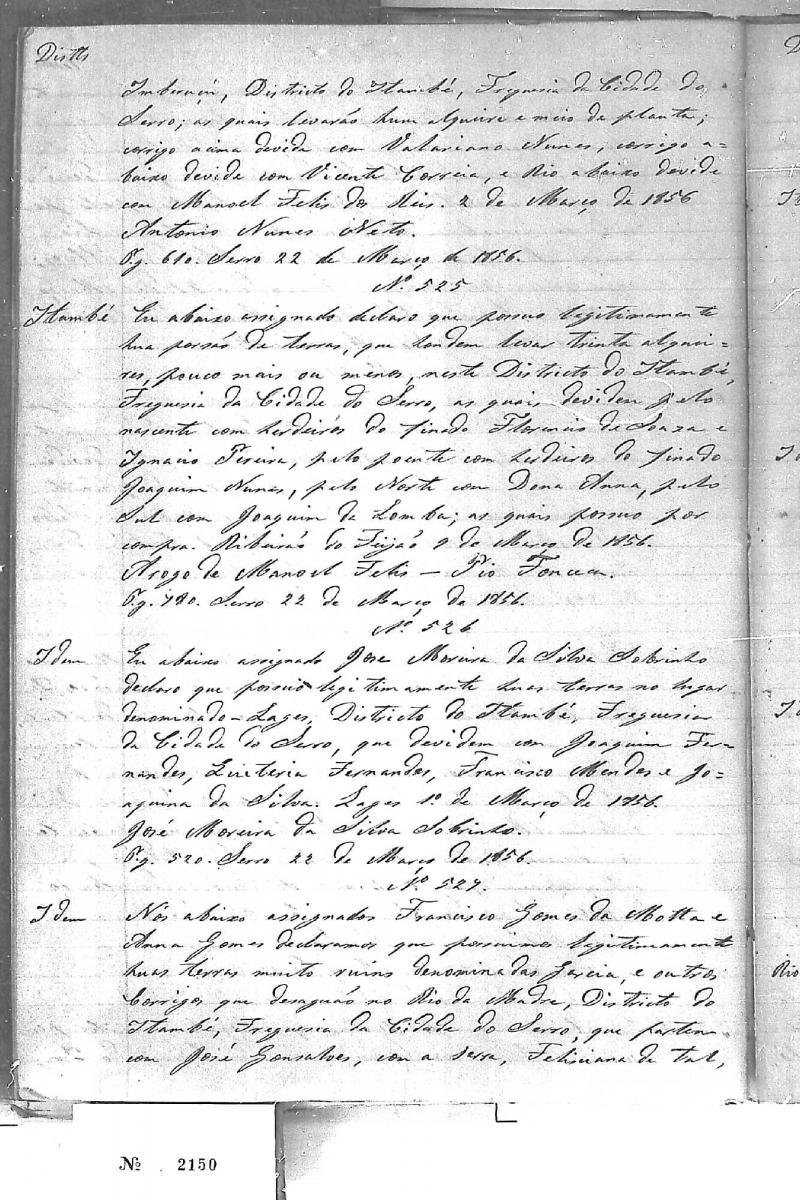 Distes
Imberuçú, Districto do Itambé, Freguesia da Cidade do
Serro; as quais levarão hum alqueire e meio de planta;
corrigo acima devide com Valariano Nunes, corrigo a-
baixo devide com Vicente Correia, e Rio abaixo devide
com Manoel Felis dos Reis. 2 de Março de 1856
Antonio Nunes Neto.
Pg. 610. Serro 22 de Março de 1856.
Nº 525
Itambé Eu abaixo assignado declaro que possuo legitimamente
hua porsão de terras, que pondem levar trinta alquei-
res, pouco mais ou menos, neste Districto do Itambé,
Freguesia da Cidade do Serro, as quais devidem pelo
nascente com herdeiros do finado Florencio de Souza e
Ignacio Pereira, pelo poente com herdeiros do finado
Joaquim Nunes, pelo Norte com Dona Anna, pelo
Sul com Joaquim da Lomba; as quais possuo por
compra. Ribeirão do Feijão 9 de Março de 1856.
Arogo de Manoel Felis – Pio Fonceca.
Pg. 780. Serro 22 de Março de 1856.
Nº 526
Idem Eu abaixo assignado José Moreira da Silva Sobrinho
declaro que possuo legitimamente huas terras no lugar
denominado – Lages, Districto do Itambé, Freguesia
da Cidade do Serro, que devidem com Joaquim Fer-
nandes, Luiteria Fernandes, Francisco Mendes e Jo-
aquina da Silva. Lages 1º de Março de 1856.
José Moreira da Silva Sobrinho.
Pg. 520. Serro 22 de Março de 1856.
Nº 527.
Idem Nós abaixo assignados Francisco Gomes da Motta e
Anna Gomes declaramos que possuimos legitimamente
huas terras muito ruins denominadas Garcia, e outros
Corrigos que desaguão no Rio da Madre, Districto do
Itambé, Freguesia da Cidade do Serro, que partem
com José Gonsalves, com a serra, Felisciana de tal,
Rio
Nº 2150